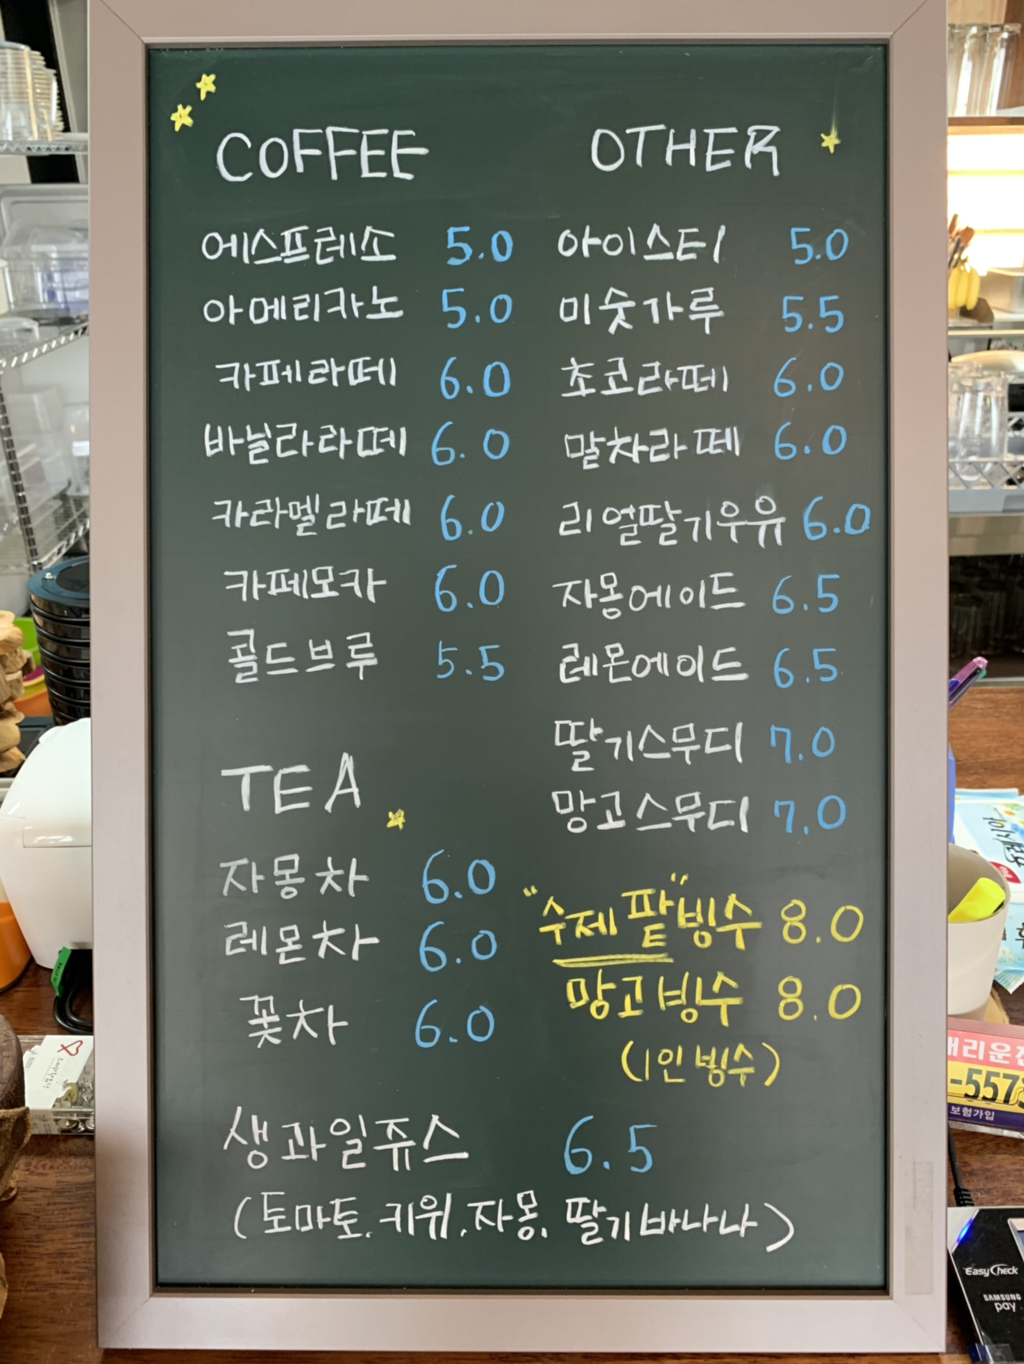 COFFEE
에스프레소 5.0
아메리카노 5.0
카페라떼 6.0
바닐라라떼 6.0
카라멜라떼 6.0
카페모카 6.0
콜드브루 5.5
TEA
자몽차 6.0
레몬차 6.0
꽃차 6.0
OTHER
아이스티 5.0
미숫가루 5.5
초코라떼 6.0
말차라떼 6.0
리얼딸기우유 6.0
자몽에이드 6.5
레몬에이드 6.5
딸기스무디 7.0
망고스무디 7.0
"수제팥"빙수 8.0
망고빙수 8.0
(1인빙수)
생과일쥬스 6.5
(토마토.키위.자몽.딸기바나나)
대리운전
-557
보험가입
EasyCheck
SAMSUNG
pay